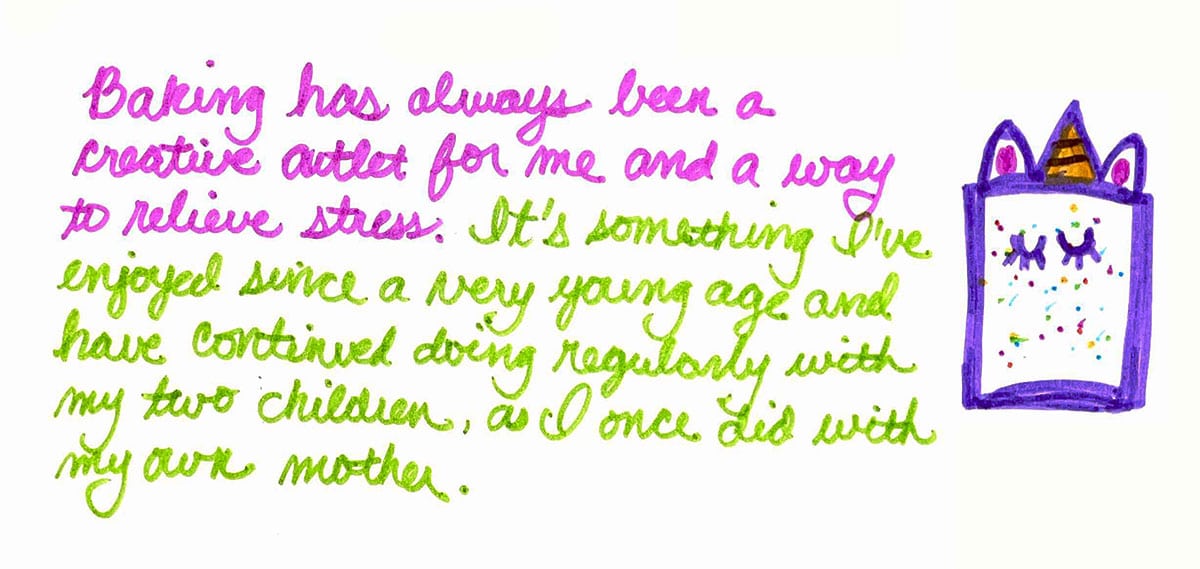 Baking has always been a
creative outlet for me and a way
to relieve stress. It's something I've
enjoyed since a very young age and
have continued doing regularly with
my two children, as I once did with
my own mother.